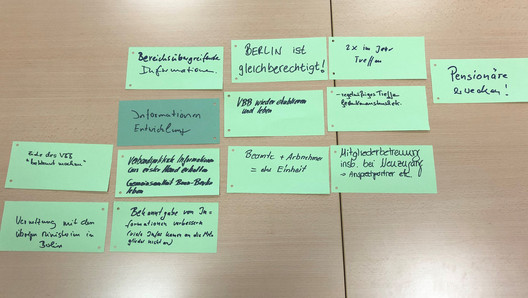 Bereichsübergreifende
Informationen.
BERLIN ist
gleichberechtigt!
2x im Jahr
Treffen
Pensionäre
wecken!
Informationen
Entwicklung
VBB wieder etablieren
und leben
- regelmäßiges Treffen
Gedankenaustausch etc.
Ziele des VBB
"bekannt machen"
Verbandspolitik Informationen
aus erster Hand erhalten
Gemeinsamkeit Bonn-Berlin
leben
Beamte + Arbnehmer
= als Einheit
Mitgliederbetreuung
insb. bei Neuzugang
→ Ansprechpartner etc.
Vernetzung mit den
übrigen Ministerien in
Berlin
Bekanntgabe von In-
formationen verbessern
(viele Infos kommen an die Mit-
glieder nicht an)